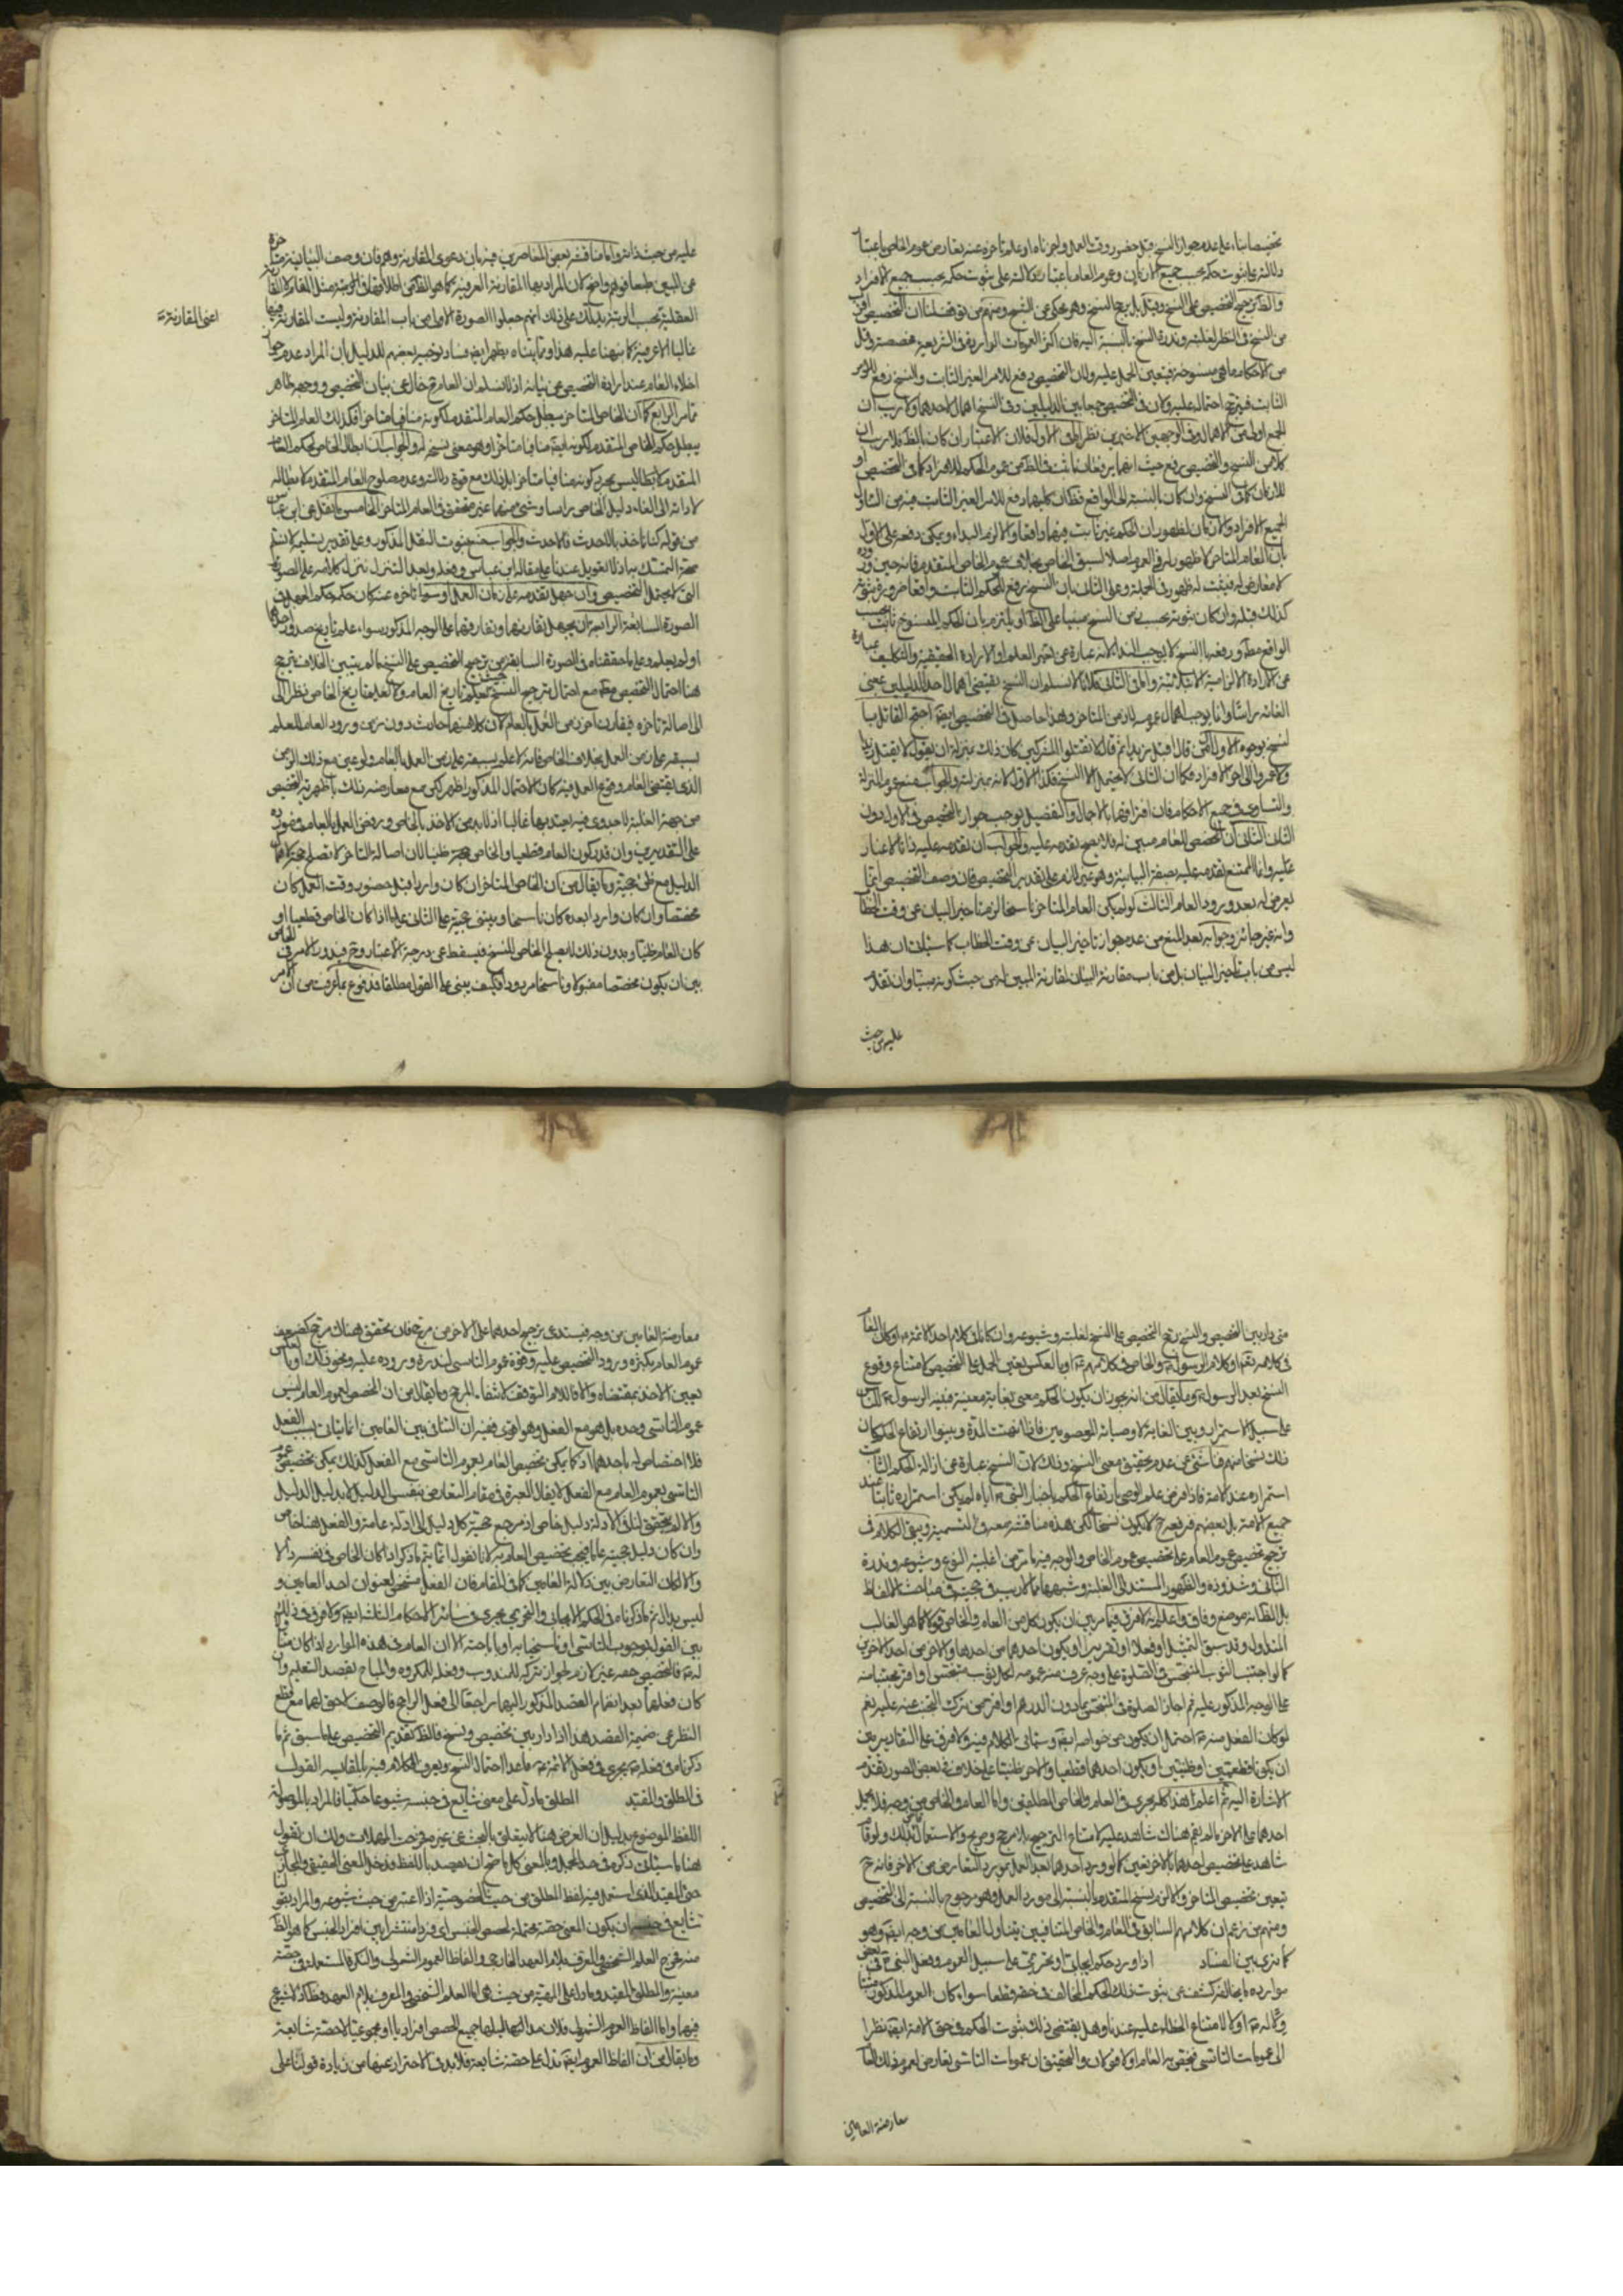 تخصيصا بناء على عدم جواز النسخ قبل حضور وقت العمل واخرناه او علم تاخره عنه تعارض عموم الخاص باعتبار
دلالته على ثبوت حكمه بحسب جميع الازمان وعموم العام باعتبار دلالته على ثبوت حكمه بحسب جميع الافراد
والظ ترجيح التخصيص على النسخ وقيل بل يرجح النسخ وهو محكي عن الشيخ ومنهم من توقف لنا ان التخصيص اقرب
من النسخ في النظر لغلبته وندرة النسخ بالنسبة اليه فان اكثر العمومات الواردة في الشريعة مخصصة وقل
من الاحكام ما هي منسوخة فيتعين الحمل عليه ولان التخصيص دفع للامر الغير الثابت والنسخ رفع للامر
الثابت فيترجح احتماله عليه ولان في التخصيص جمعا بين الدليلين وفي النسخ اهمال لاحدهما ولا ريب ان
الجمع اولى من الاهمال وفي الوجهين الاخيرين نظر اما في الاول فلان الاعتبار ان كان بالظ فلا ريب ان
كلا من النسخ والتخصيص رفع حيث انهما يرفعان ما ثبت في الظ من عموم الحكم للافراد كما في التخصيص او
للازمان كما في النسخ وان كان بالنسبة الى الواقع فظ ان كليهما دفع للامر الغير الثابت فيه من التناول
لجميع الافراد والازمان لظهور ان الحكم غير ثابت فيهما واقعا والا لزم البداء ويمكن دفعه على الاول
بان العام المتاخر لا ظهور له في العموم اصلا لسبق الخاص بخلاف عموم الخاص المتقدم فانه حين وروده
لا معارض له فيثبت له ظهور في الجملة وعلى الثاني بان النسخ يرفع الحكم الثابت واقعا ضرورة ثبوته
كذلك قبله وان كان ثبوته بحسب زمن النسخ مبنيا على الظ او يلتزم بان الحكم المنسوخ ثابت بحسب
الواقع مط ورفعه بالنسخ لا يوجب البداء لانه عبارة عن تغير العلم او الارادة الحقيقية والتكليف عبارة
عن الارادة الالزامية الابتلائية واما في الثاني فلانا لا نسلم ان النسخ يقتضي اهمال احد الدليلين بمعنى
الغائه راسا وانما يوجب اهمال عمومه لازمن المتاخر وهذا حاصل في التخصيص ايضا احتج القائل با
لنسخ بوجوه الاول اذا قال اقتل زيدا ثم قال لا تقتلوا المشركين كان ذلك بمنزلة ان يقول لا يقتل زيدا
ولا عمروا الى اخر الافراد فكما ان الثاني لا يحتمل الا النسخ فكذا الاول لانه بمنزلته والجواب منع عموم المنزلة
والتساوي في جميع الاحكام فان افتراقهما بالاجمال والتفصيل يوجب جواز التخصيص في الاول دون
الثاني الثاني ان المخصص للعام مبين له فلا يصح تقدمه عليه والجواب ان تقدمه عليه ذاتا لا غبار
عليه وانما الممتنع تقدمه عليه بصفة البيانية وهو غير لازم على تقدير التخصيص فان وصف التخصيص انما
يعرض له بعد ورود العام الثالث لو لم يكن العام المتاخر ناسخا لزم تاخير البيان عن وقت الخطاب
وانه غير جائز وجوابه بعد المنع من عدم جواز تاخير البيان عن وقت الخطاب كما سياتي ان هذا
ليس من باب تاخير البيان بل من باب مقارنة البيان لمقارنة المبين له من حيث كونه مبينا وان تقدم
عليه من حيث
عليه من حيث ذاته واما مناقشة بعض المعاصرين فيه بان دعوى المقارنة وهم فان وصف البيانية متاخرة
عن المبين طبعا فوهم واضح لان المراد بها المقارنة العرفية كما هو الظ من اطلاقها في المقام لا المقارنة
العقلية بحسب الرتبة يدلك على ذلك انهم جعلوا الصورة الاولى من باب المقارنة وليست المقارنة فيها
اعنى المقارنة
غالبا الا عرفية كما نبهنا عليه هذا ومما بيناه يظهر ايض فساد توجيه بعضهم للدليل بان المراد عدم جواز
اخلاء العام عند ارادة التخصيص عن بيانه اذ لا نسلم ان العام ح خال عن بيان التخصيص ووجهه ظاهر
مما مر الرابع كما ان الخاص المتاخر يبطل حكم العام المتقدم لكونه منافيا متاخرا فكذلك العام المتاخر
يبطل حكم الخاص المتقدم لكونه ايضا منافيا متاخرا وهو معنى نسخه له والجواب ان ابطال الخاص لحكم العام
المتقدم لا بطاليس بمجرد كونه منافيا متاخرا بل ذلك مع قوة دلالته وعدم صلوح العام المتقدم لابطاله
لادائه الى الغاء دليل الخاص راسا وشئ منهما غير متحقق في العام المتاخر الخامس ما نقل عن ابن عباس
من قوله كنا ناخذ بالاحدث فالاحدث والجواب منع ثبوت النقل المذكور وعلى تقدير تسليمه لا نسلم
صحة التمسك به اذ لا تعويل عندنا على مقالة ابن عباس وفعله وبعد التنزل ننزل كلامه على الصورة
التي لا يحتمل التخصيص وان جهل تقدمه على زمان العمل او سواء تاخره عنه كان حكمه حكم المجهول في
الصورة السابقة الرابعة ان يجهل تقارنهما وتفارقهما على الوجه المذكور سواء علم تاريخ صدور احدهما
او لم يعلم وعلى ما حققناه في الصورة السابقة من ترجيح التخصيص على النسخ ما لم يتبين الخلاف يترجح
هنا احتمال التخصيص مط مع احتمال ترجيح النسخ حيث يعلم تاريخ العام ولا يعلم تاريخ الخاص نظرا الى
الى اصالة تاخره فيقارن اخر زمن العمل بالعام لان كلا منهما حادث دون زمن ورود العام للعلم
بسبقه على زمن العمل بخلاف الخاص فانه لا علم بسبقه على زمن العمل بالعام ولو عين مع ذلك الزمن
الذي يقتضي العام وقوع العمل فيه كان الاحتمال المذكور اظهر لكن مع معارضه ذلك باظهرية التخصيص
من جهة الغلبة لا جدوى فيه يعتد بها غالبا اذ لا بد من الاخذ بالخاص ورفض العمل بالعام في مورده
على التقديرين وان قدر كون العام قطعيا والخاص حجة ظنية لان اصالة التاخر لا تصلح حجة لاهمال
الدليل مع ظن حجيته وما يقال من ان الخاص المتاخر ان كان واردا قبل حضور وقت العمل كان
مخصصا وان كان واردا بعده كان ناسخا ويبتنى حجيته على الثاني على ما اذا كان الخاص قطعيا او
كان العام ظنيا وبدون ذلك لا يصلح الخاص للنسخ فيسقط عن درجة الاعتبار وح فيدور الامر في الخاص
بين ان يكون مخصصا مقبولا وناسخا مردودا فكيف يبنى على القول مطلقا فمدفوع بما عرفت من ان الامر
متى دار بين التخصيص والنسخ رجح التخصيص على النسخ لغلبته وشيوعه وان كانا في كلام احد الائمة ع او كان العام
في كلامه تع او كلام الرسول ص والخاص في كلامهم ع او بالعكس يعين الحمل على التخصيص لامتناع وقوع
النسخ بعد الرسول ص وما يقال من انه يجوز ان يكون الحكم معنى بغاية معينة فبينه الرسول ص للناس
على سبيل الاستمرار وبين الغاية لاوصيائه المعصومين فاذا انتهت المدة وبينوا ارتفاع الحكم كان
ذلك نسخا منهم فناشئ عن عدم تحقيق معنى النسخ وذلك لان النسخ عبارة عن ازالة الحكم الثابت
استمراره عند الامة فاذا فرض علم الوصي بارتفاع الحكم باخبار النبي ص اياه لم يكن استمراره ثابتا عند
جميع الامة بل بعضهم فرفعه ح لا يكون نسخا لكن هذه مناقشة معه في التسمية ويبقى الكلام في
ترجيح تخصيص عموم العام على تخصيص عموم الخاص والوجه فيه ما مر من اغلبية النوع وشيوعه وندرة
الثاني وشذوذه والظهور المستند الى الغلبة وشبهها مما لا ريب في حجيته في مباحث الالفاظ
بل الظ انه موضع وفاق واعلم انه لا فرق فيما مر بين ان يكون كل من العام والخاص قولا كما هو الغالب
المتداول وقد سبق التمثيل او فعلا او تقريرا او يكون احدهما من احدها والاخر من احد الاخرين
كما لو اجتنب الثوب المتنجس في الصلوة على وجه عرف منه عمومه لكل ثوب متنجس او اقر مجتنبا منه
على الوجه المذكور عليه ثم اجاز الصلوة في المتنجس بما دون الدرهم او اقر من ترك التجنب عنه عليه نعم
لو كان الفعل منه ص احتمل ان يكون من خواصه ايضا وسياتي الكلام فيه ولا فرق على التقديرين
ان يكونا قطعيين او ظنيين او يكون احدهما قطعيا والاخر ظنيا على خلاف في بعض الصور تقدمت
الاشارة اليه ثم اعلم ان هذا كله يجري في العام والخاص المطلقين واما العام والخاص من وجه فلا يحمل
احدهما على الاخر ما لم يقم هناك شاهد عليه لامتناع الترجيح بلا مرجح وصريح والاستعمال كذلك ولو قام
شاهد على تخصيص احدهما بالاخر تعين كما لو ورد احدهما بعد العمل بمورد التعارض من الاخر فانه ح
يتعين تخصيص المتاخر والا لزم نسخ المتقدم بالنسبة الى مورد العمل وهو مرجوح بالنسبة الى التخصيص
ومنهم من زعم ان كلامهم السابق في العام والخاص المتنافيين يتناول العامين من وجه ايضا وهو
كما ترى بين الفساد اذا ورد حكم ايجابي او تحريمي على سبيل العموم وفعل النبي ص في بعض
موارده ما يخالفه كشف عن ثبوت ذلك الحكم المخالف في حقه قطعا سواء كان العموم المذكور متناولا
له ص او لا لامتناع الخطاء عليه عندنا وهل يقتضي ذلك ثبوت الحكم في حق الامة ايضا نظرا
الى عمومات التاسي فيختص به العام او لا قولان والتحقيق ان عمومات التاسي تعارض عموم ذلك العام
معارضة العامين
معارضة العامين من وجه فيستدعي ترجيح احدهما على الاخر من مرجح فان تحقق هناك مرجح كضعف
عموم العام بكثرة ورود التخصيص عليه وقوة عموم التاسي لندرة وروده عليه ونحو ذلك او بالعكس
تعين الاخذ بمقتضاه والا فاللازم التوقف لانتفاء المرجح وما يقال من ان المخصص لعموم العام ليس
عموم التاسي وحده بل هو مع الفعل وهو اقوى ففيه ان التنافي بين العامين انما ياتي بسبب الفعل
فلا اختصاص له باحدهما اذ كما يمكن تخصيص العام بعموم التاسي مع الفعل كذلك يمكن تخصيص عموم
التاسي بعموم العام مع الفعل لا يقال العبرة في مقام التعارض بنفس الدليل لا بدليل الدليل
والا لم يتحقق لنا في الادلة دليل خاص اذ مرجع حجية كل دليل الى ادلة عامة والفعل هنا خاص
وان كان دليل حجيته عاما فيجب تخصيص العام به لانا نقول انما يتم ما ذكر اذا كان الخاص في نفسه دالا
والا لكان التعارض بين دلالة العامين كما في المقام فان الفعل مشخص لعنوان احد العامين و
ليس بدال ثم ما ذكرناه في الحكم الايجابي والتحريمي يجري في سائر الاحكام الثلاث ايضا ولا فرق في ذلك
بين القول بوجوب التاسي او باستحبابه او باباحته الا ان العام في هذه الموارد اذا كان متناولا
له ص فالتخصيص في حقه غير لازم لجواز تركه للمندوب وفعله للمكروه والمباح بقصد التعليم وان
كان فعلهما بعد انضمام القصد المذكور اليهما راجعا الى فعل الراجح فالوصف لاحق لهما مع قطع
النظر عن ضميمة القصد هذا اذا دار بين تخصيص ونسخ فالظ تقديم التخصيص على ما سبق ثم ما
ذكرنا في فعله ص يجري في فعل الائمة ع ما عدا احتمال النسخ ويعرف الكلام فيه بالمقايسة القول
في المطلق والمقيد المطلق ما دل على معنى شايع في جنسه شيوعا حكميا فالمراد بالموصولة
اللفظ الموضوع بدليل ان الغرض هنا لا يتعلق بالبحث عن غيره فخرجت المهملات ولك ان تقول
هنا ما سياتي ذكره في حد المجمل وبالمعنى كل ما صح ان يقصد باللفظ فدخل المعنى الحقيقي والمجازي
حتى المقيد الذي استعمل فيه لفظ المطلق من حيث الخصوصية اذا اعتبر من حيث شيوعه والمراد بقولنا
شايع في جنسه ان يكون المعنى حصة محتملة لحصص الجنس اي فردا منتشرا بين افراد الجنس كما هو الظ
منه فخرج العلم الشخصي والمعرف بلام العهد الخارجي والفاظ العموم الشمولي والنكرة المستعملة في حصة
معينة والمطلق المقيد وما دل على المهية من حيث هي اما العلم الشخصي والمعرف بلام العهد فظ اذ لا شيوع
فيهما واما الفاظ العموم الشمولي فلان مداليلها جميع الحصص افراديا او مجموعيا لا حصة شايعة
وما يقال من ان الفاظ العموم ايضا تدل على حصة شايعة فلا بد في الاحتراز عنها من زيادة قولنا على